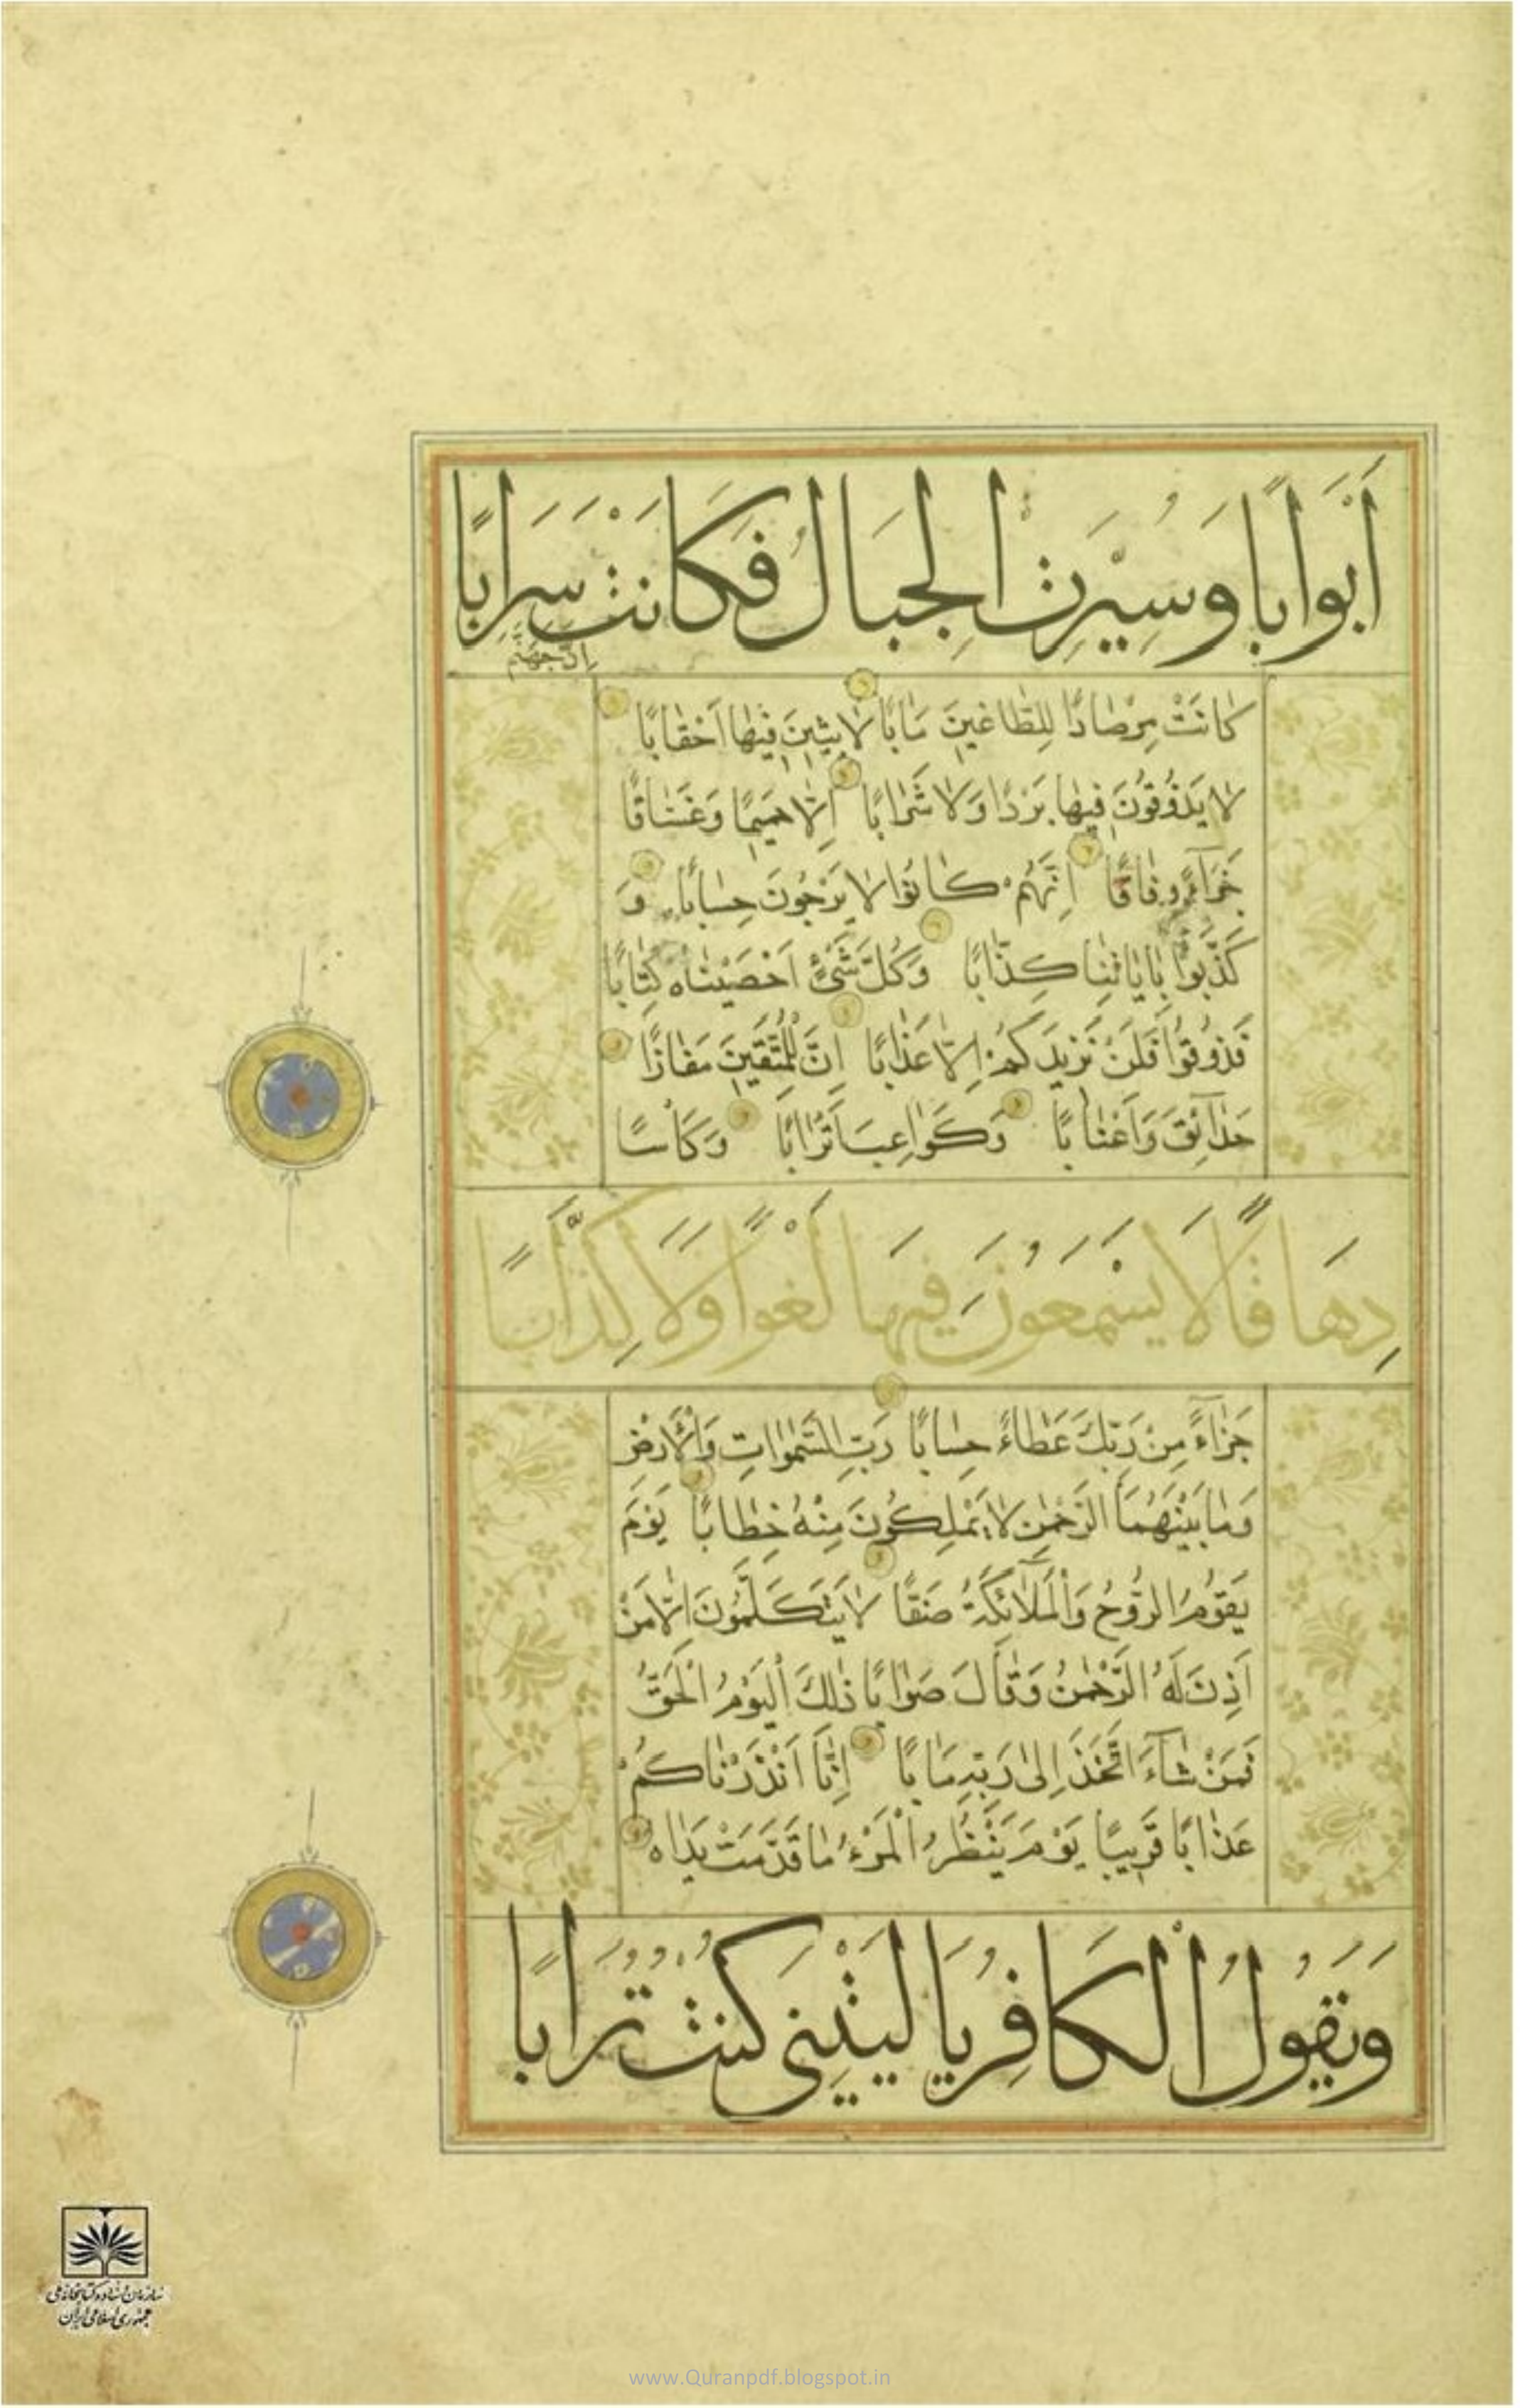 أَبْوَابًا وَسُيِّرَتِ الْجِبَالُ فَكَانَتْ سَرَابًا
اِنَّ جَهَنَّمَ
كَانَتْ مِرْصَادًا لِلطَّاغِينَ مَاٰبًا لَابِثِينَ فِيهَا اَحْقَابًا
لَا يَذُوقُونَ فِيهَا بَرْدًا وَلَا شَرَابًا اِلَّا حَمِيمًا وَغَسَّاقًا
جَزَآءً وِفَاقًا اِنَّهُمْ كَانُوا لَا يَرْجُونَ حِسَابًا وَ
كَذَّبُوا بِاٰيَاتِنَا كِذَّابًا وَكُلَّ شَيْءٍ اَحْصَيْنَاهُ كِتَابًا
فَذُوقُوا فَلَنْ نَزِيدَكُمْ اِلَّا عَذَابًا اِنَّ لِلْمُتَّقِينَ مَفَازًا
حَدَآئِقَ وَاَعْنَابًا وَكَوَاعِبَ اَتْرَابًا وَكَأْسًا
دِهَاقًا لَا يَسْمَعُونَ فِيهَا لَغْوًا وَلَا كِذَّابًا
جَزَآءً مِنْ رَبِّكَ عَطَاءً حِسَابًا رَبِّ السَّمٰوَاتِ وَالْاَرْضِ
وَمَا بَيْنَهُمَا الرَّحْمٰنِ لَا يَمْلِكُونَ مِنْهُ خِطَابًا يَوْمَ
يَقُومُ الرُّوحُ وَالْمَلَآئِكَةُ صَفًّا لَا يَتَكَلَّمُونَ اِلَّا مَنْ
اَذِنَ لَهُ الرَّحْمٰنُ وَقَالَ صَوَابًا ذٰلِكَ الْيَوْمُ الْحَقُّ
فَمَنْ شَآءَ اتَّخَذَ اِلٰى رَبِّهِ مَاٰبًا اِنَّا اَنْذَرْنَاكُمْ
عَذَابًا قَرِيبًا يَوْمَ يَنْظُرُ الْمَرْءُ مَا قَدَّمَتْ يَدَاهُ
وَيَقُولُ الْكَافِرُ يَا لَيْتَنِي كُنْتُ تُرَابًا
سازمان اسناد و کتابخانه ملی
جمهوری اسلامی ایران
www.Quranpdf.blogspot.in